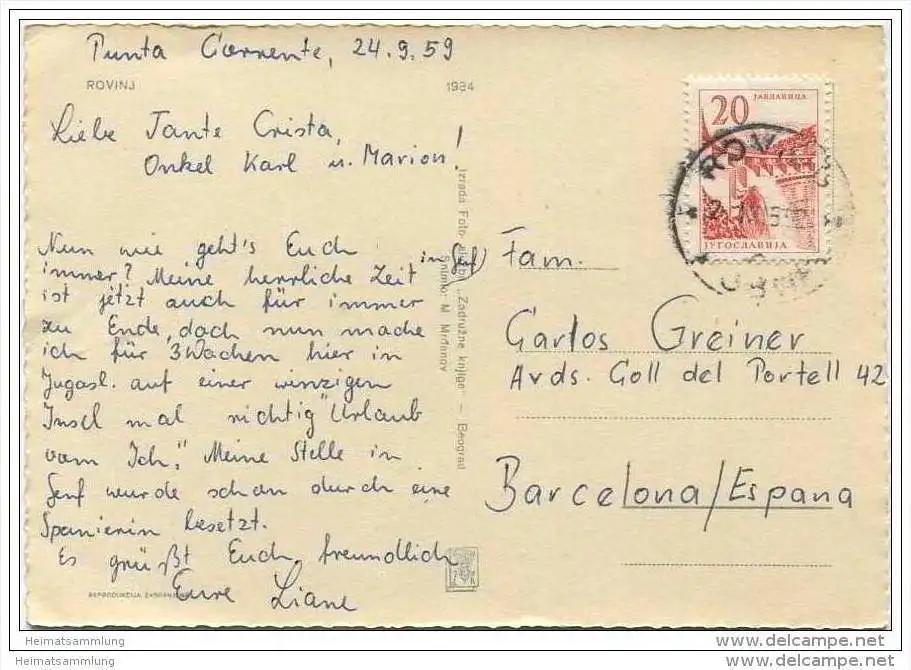 Punta Corrente, 24.9.59
ROVINJ 1984
Liebe Tante Crista,
Onkel Karl u. Marion!
Nun wie geht's Euch
immer? Meine herrliche Zeit in Genf
ist jetzt auch für immer
zu Ende, doch nun mache
ich für 3 Wochen hier in
Jugosl. auf einer winzigen
Insel mal richtig "Urlaub
vom Ich". Meine Stelle in
Genf wurde schon durch eine
Spanierin besetzt.
Es grüßt Euch freundlich
Eure Liane
REPRODUKCIJA
Izrada Foto „Zadružne knjige” — Beograd
Snimio: M. Mrđenov
20
ЈАБЛАНИЦА
ЈУГОСЛАВИЈА
Fam.
Carlos Greiner
Avds. Coll del Portell 42
Barcelona/Espana
Heimatsammlung
Heimatsammlung
www.delcampe.net
www.delcampe.net